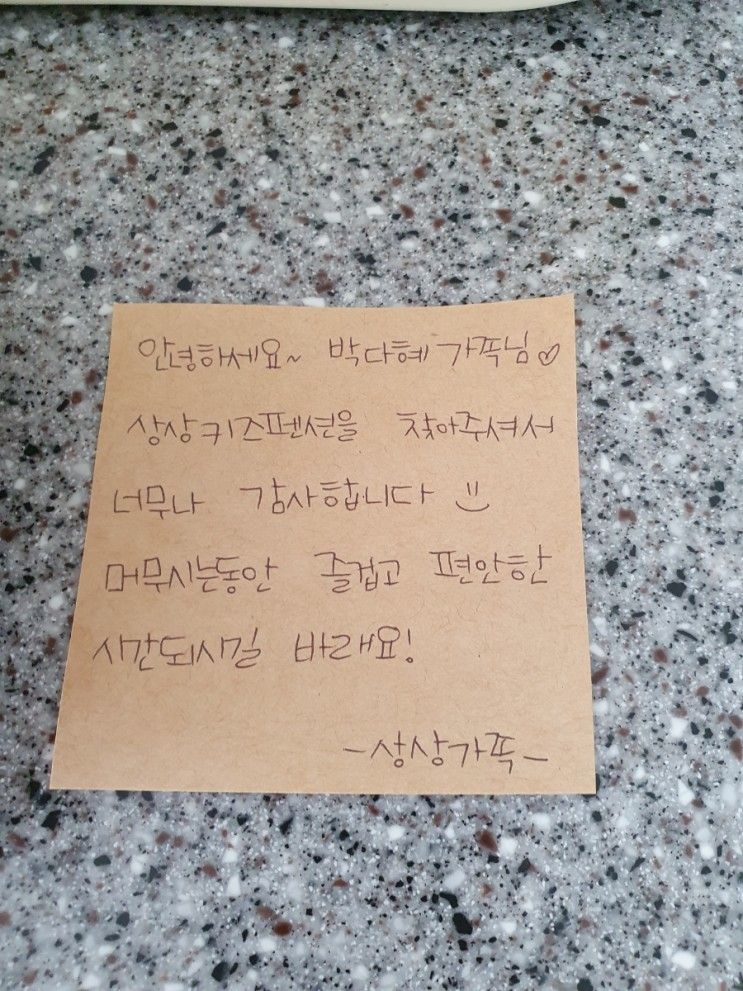 안녕하세요~ 박다혜 가족님♡
상상키즈펜션을 찾아주셔서
너무나 감사합니다 :)
머무시는동안 즐겁고 편안한
시간되시길 바래요!
-상상가족-